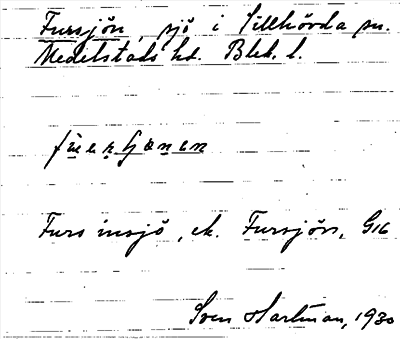 Fursjön, sjö i Tillhövda sn.
Medelstads hd. Blek. l.
Furs insjö, ek. Fursjön, G16
Sven Hartman, 1930